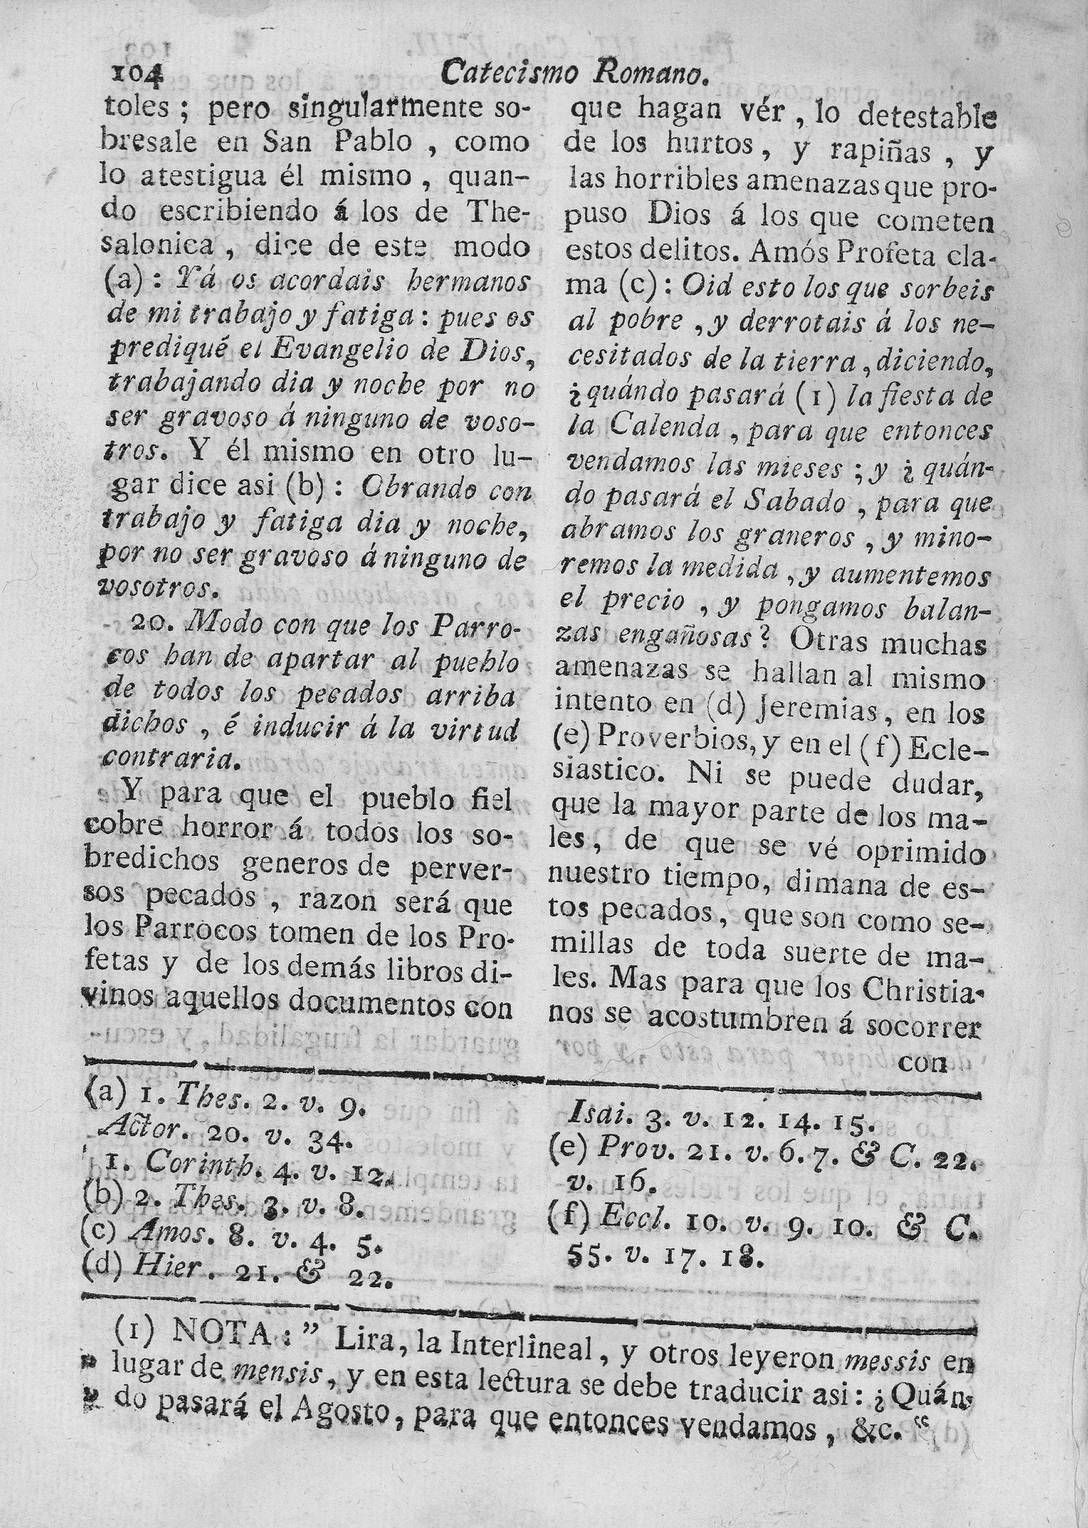 104
Catecismo Romano.
toles ; pero singularmente so-
bresale en San Pablo , como
lo atestigua él mismo , quan-
do escribiendo á los de The-
salonica , dice de este modo
(a) : Yá os acordais hermanos
de mi trabajo y fatiga : pues os
prediqué el Evangelio de Dios,
trabajando dia y noche por no
ser gravoso á ninguno de voso-
tros. Y él mismo en otro lu-
gar dice asi (b) : Obrando con
trabajo y fatiga dia y noche,
por no ser gravoso á ninguno de
vosotros.
20. Modo con que los Parro-
cos han de apartar al pueblo
de todos los pecados arriba
dichos , é inducir á la virtud
contraria.
Y para que el pueblo fiel
cobre horror á todos los so-
bredichos generos de perver-
sos pecados , razon será que
los Parrocos tomen de los Pro-
fetas y de los demás libros di-
vinos aquellos documentos con
que hagan vér , lo detestable
de los hurtos, y rapiñas , y
las horribles amenazas que pro-
puso Dios á los que cometen
estos delitos. Amós Profeta cla-
ma (c) : Oid esto los que sorbeis
al pobre , y derrotais á los ne-
cesitados de la tierra , diciendo,
¿quándo pasará (1) la fiesta de
la Calenda , para que entonces
vendamos las mieses ; y ¿ quán-
do pasará el Sabado , para que
abramos los graneros , y mino-
remos la medida , y aumentemos
el precio , y pongamos balan-
zas engañosas ? Otras muchas
amenazas se hallan al mismo
intento en (d) Jeremias, en los
(e) Proverbios, y en el (f) Ecle-
siastico. Ni se puede dudar,
que la mayor parte de los ma-
les, de que se vé oprimido
nuestro tiempo, dimana de es-
tos pecados, que son como se-
millas de toda suerte de ma-
les. Mas para que los Christia-
nos se acostumbren á socorrer
con
(a) 1. Thes. 2. v. 9.
Actor. 20. v. 34.
1. Corinth. 4. v. 12.
(b) 2. Thes. 3. v. 8.
(c) Amos. 8. v. 4. 5.
(d) Hier. 21. & 22.
Isai. 3. v. 12. 14. 15.
(e) Prov. 21. v. 6. 7. & C. 22.
v. 16.
(f) Eccl. 10. v. 9. 10. & C.
55. v. 17. 18.
(1) NOTA : ” Lira, la Interlineal, y otros leyeron messis en
” lugar de mensis, y en esta lectura se debe traducir asi : ¿Quán-
” do pasará el Agosto, para que entonces vendamos, &c. “